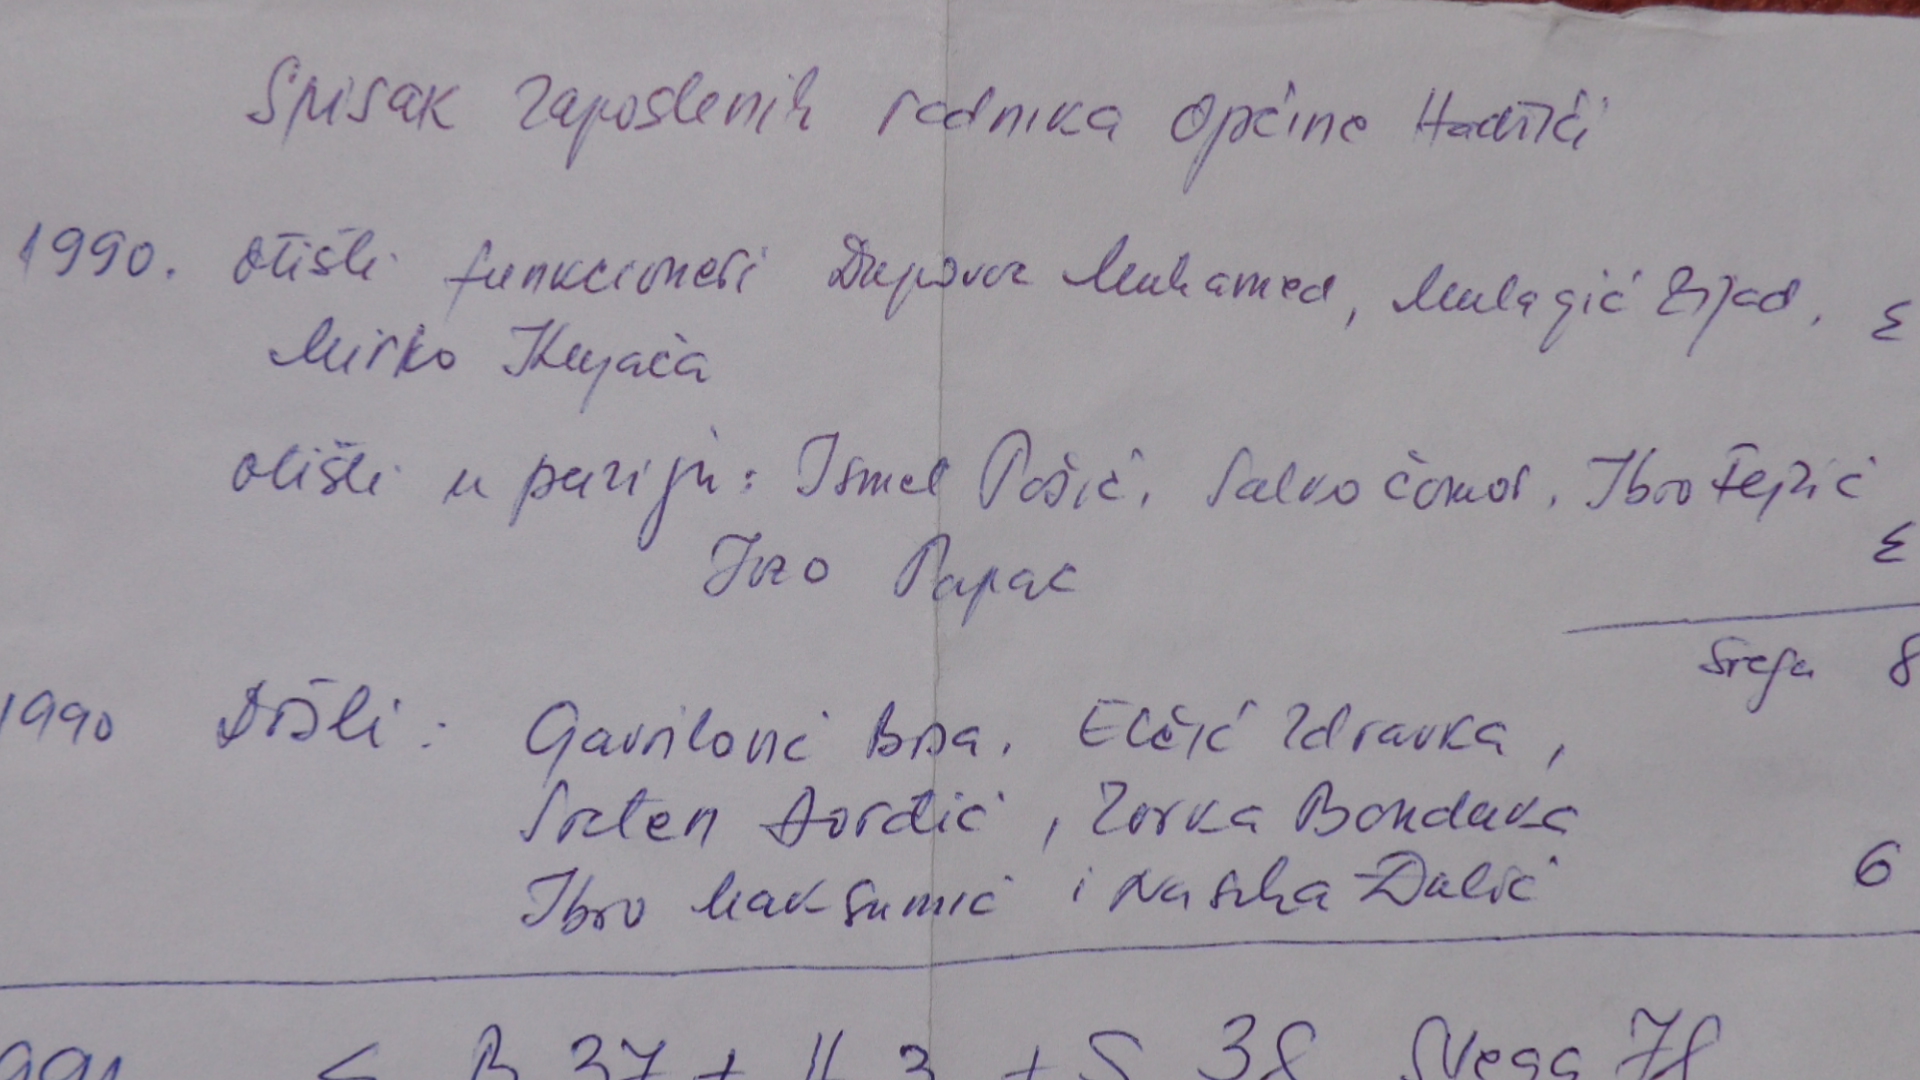 Spisak zaposlenih radnika općine Hadžići
1990. otišli funkcioneri Dupovac Muhamed, Mulagić Zijad, Σ
Mirko Kujača
otišli u penziju: Ismet Pošić, Salko Čomor, Ibro Fejzić
Jozo Papac Σ
Svega 8
1990 Došli: Gavrilović Bosa, Elčić Zdravka,
Sreten Đorđić, Zorka Bonduka
Ibro Maksumić i Nasiha Đulić 6
1991 B 37 + H 3 + S 38 Svega 78